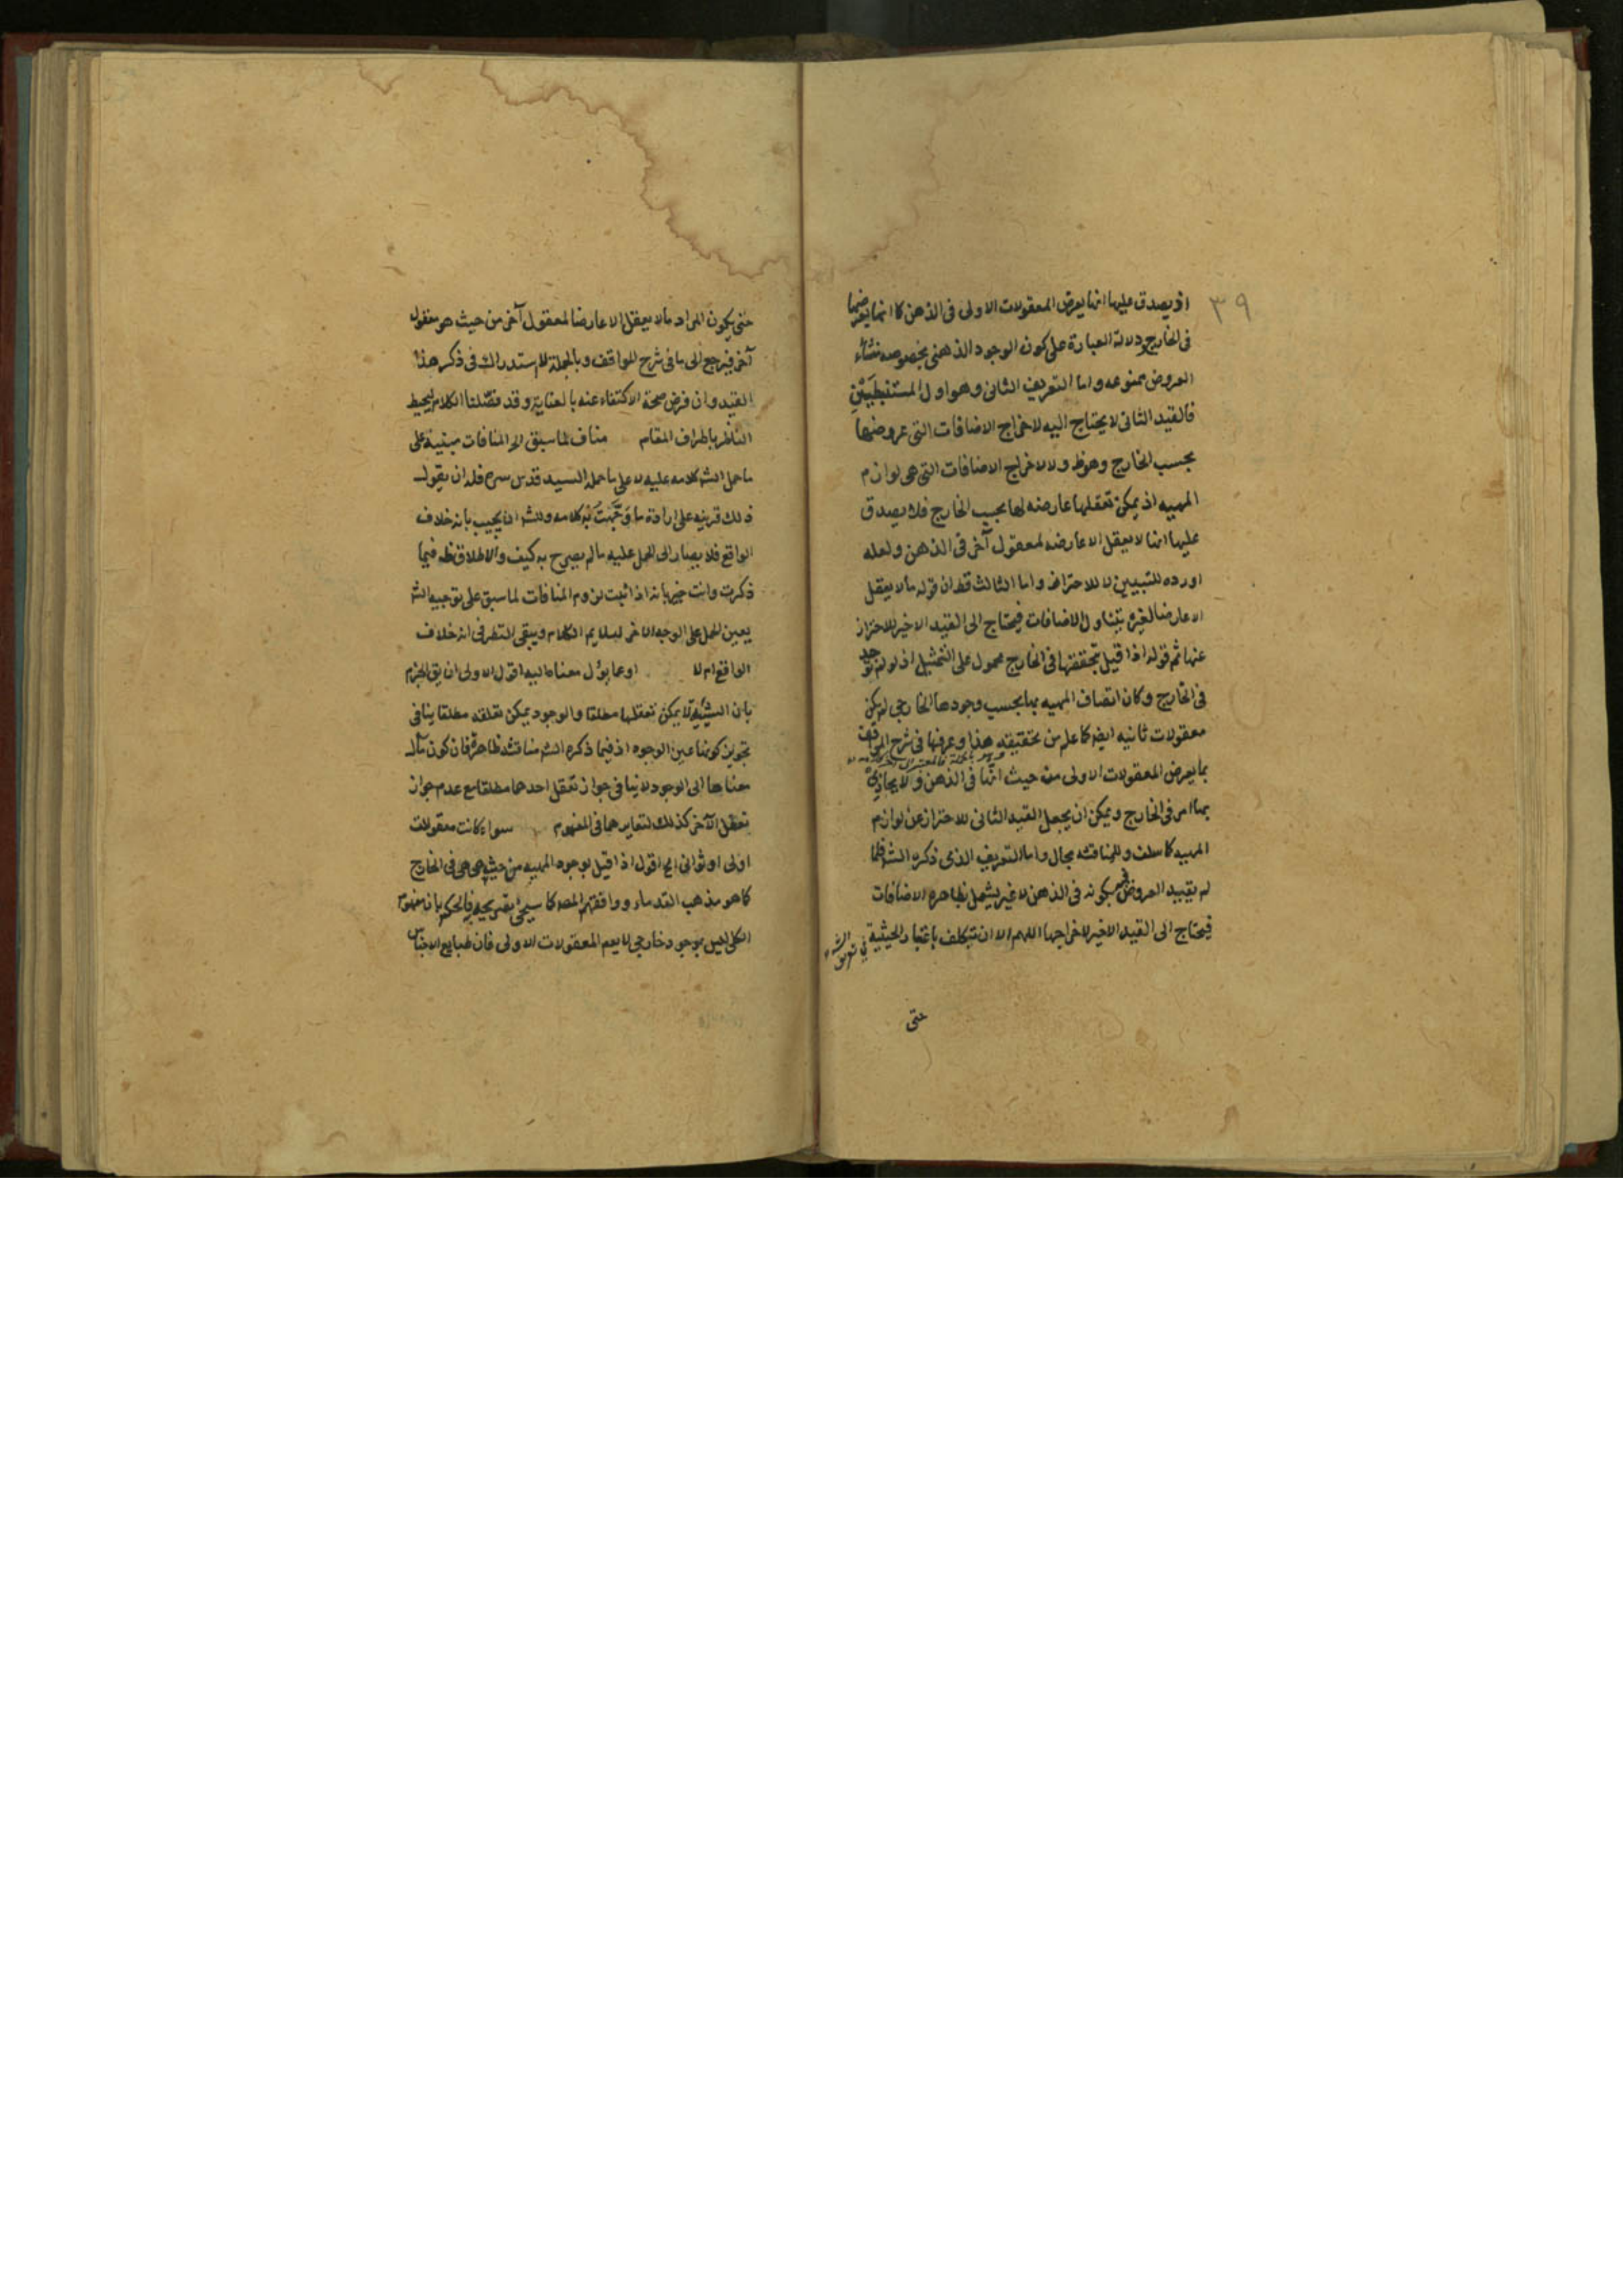 ٣٩
اذ يصدق عليها انها يعرض المعقولات الاولى فى الذهن كما انها يعرضها
فى الخارج ودلالة العبارة على كون الوجود الذهنى بخصوصه منشاء
العروض ممنوعه واما التعريف الثانى وهو اول المستنبطَيَيْنِ
فالقيد الثانى لا يحتاج اليه لاخراج الاضافات التى عروضها
بحسب الخارج وهو ظ ولا لاخراج الاضافات التى هى لوازم
المهيه اذ يمكن تعقلها عارضه لها بحسب الخارج فلا يصدق
عليها انها لا يعقل الا عارضه لمعقول آخر فى الذهن ولعله
اورده للتبيين لا للاحتراز واما الثالث فظ ان قوله ما لا يعقل
الا عارضا لغيره يتناول الاضافات فيحتاج الى القيد الاخير للاحتراز
عنها ثم قوله اذا قيل بتحققها فى الخارج محمول على التمثيل اذ لو لم توجد
فى الخارج وكان اتصاف المهيه بها بحسب وجودها الخارجى لم يكن
معقولات ثانيه ايضا كما علم من تحقيقه هذا وعرفها فى شرح المواقف
بما يعرض المعقولات الاولى من حيث انها فى الذهن ولا يحاذى
بها امر فى الخارج ويمكن ان يجعل القيد الثانى للاحتراز عن لوازم
المهيه كما سلف وللمناقشه مجال واما التعريف الذى ذكره الشه فلما
لم يقييد العروض فيه بكونه فى الذهن لا غير يشمل بظاهره الاضافات
فيحتاج الى القيد الاخير لاخراجها اللهم الا ان تتكلف باعتبار الحيثية فى تعريف الشه
حتى
حتى يكون المراد ما لا يعقل الا عارضا لمعقول آخر من حيث هو معقول
آخر فيرجع الى ما فى شرح المواقف وبالجملة لا استدراك فى ذكر هذا
القيد وان فرض صحة الاكتفاء عنه بالعناية وقد فصّلنا الكلام ليحيط
الناظر باطراف المقام مناف لما سبق الخ المنافات مبنية على
ما حمل الشه كلامه عليه لا على ما حمله السيد قدس سره فله ان يقول
ذلك قرينه على ارادة ما وَجَّهْتُ به كلامه وللشه ان يجيب بانه خلاف
الواقع فلا يصار الى الحمل عليه ما لم يصرح به كيف والاطلاق ظه فيما
ذكرت وانت خبير بانه اذا ثبت لزوم المنافات لما سبق على توجيه الشه
يعين الحمل على الوجه الاخر ليلايم الكلام ويبقى النظر فى انه خلاف
الواقع ام لا او عما يؤل معناه اليه اقول الاولى ان يق الجزم
بان الشيئية لا يمكن تعقلها مطلقا والوجود يمكن تعلقه مطلقا ينافى
تجويز كونها عين الوجود اذ فيما ذكره الشه مناقشه ظاهرة فان كون مآل
معناها الى الوجود لا ينافى جواز تعقل احدهما مطلقا مع عدم جواز
تعقل الآخر كذلك لتغايرهما فى المفهوم سواء كانت معقولات
اولى او ثوانى الخ اقول اذا قيل بوجود المهيه من حيث هى هى فى الخارج
كما هو مذهب القدماء ووافقهم المصه كما سيجئ تصريحه فالحكم بان مفهوم
الكلى ليس بموجود خارجى لا يعم المعقولات الاولى فان طبايع الاجناس